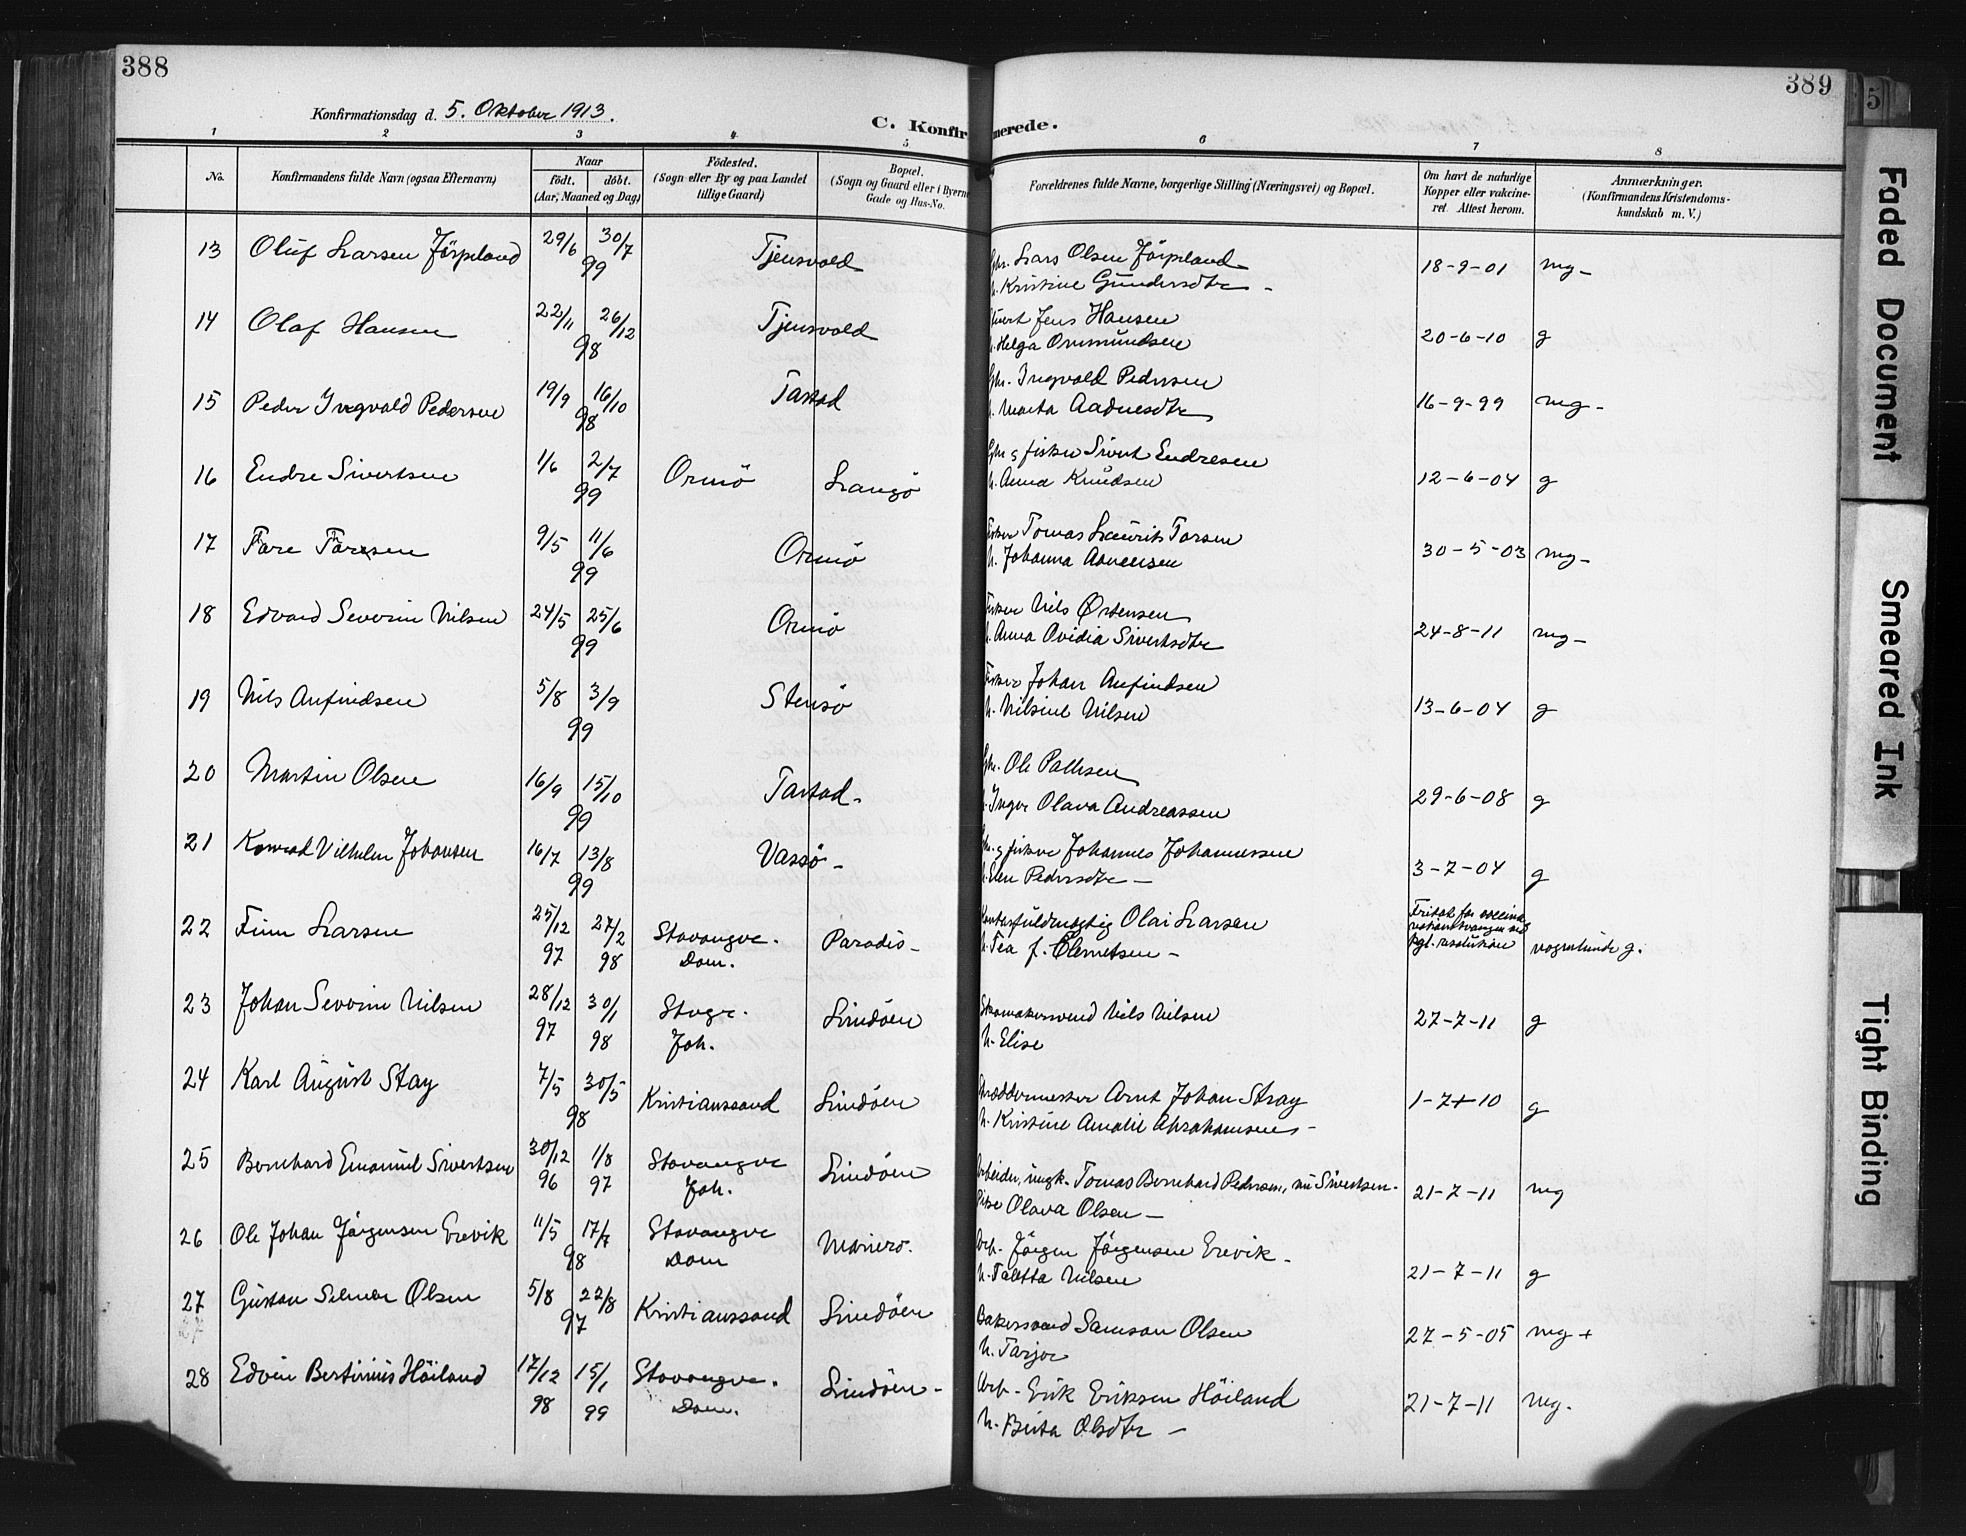 388
389
Konfirmationsdag d. 5. Oktober 1913.
C. Konfirmerede.
1 2 3 4 5 6 7 8
No.
Konfirmandens fulde Navn (ogsaa Efternavn)
Naar
födt. döbt.
(Aar, Maaned og Dag)
Födested.
(Sogn eller By og paa Landet
tillige Gaard)
Bopæl.
(Sogn og Gaard eller i Byerne
Gade og Hus-No.
Forældrenes fulde Navne, borgerlige Stilling (Næringsvei) og Bopæl.
Om havt de naturlige
Kopper eller vakcine-
ret Attest herom.
Anmærkninger.
(Konfirmandens Kristendoms-
kundskab m. V.)
13 Oluf Larsen Jörpeland 29/6 30/7 99 Tjensvold Lars Olsen Jörpeland 18-9-01 mg-
Kristine Gundersdtr -
14 Olaf Hansen 22/11 26/12 98 Tjensvold Jens Hansen 20-6-10 g
Helga Ommundsen
15 Peder Ingvald Pedersen 19/9 16/10 98 Tastad Gbr. Ingvald Pedersen 16-9-99 mg-
Marta Aadnesdtr
16 Endre Sivertsen 1/6 2/7 99 Ormö Langö Gbr g fisker Sivert Endresen 12-6-04 g
h. Anna Knudsen
17 Tare Taresen 9/5 11/6 99 Ormö Fisker Tomas Laurits Tarsen 30-5-03 mg-
h. Johanna
18 Edvard Severin Nilsen 24/5 25/6 99 Ormö Fisker Nils Østensen 24-8-11 mg-
Anna Ovidia Sivertsdtr
19 Nils Anfindsen 5/8 3/9 99 Stensö Fisker Johan Anfindsen 13-6-04 g
h. Nilsine Nilsen
20 Martin Olsen 16/9 15/10 99 Tastad- Gbr. Ole Pallesen 29-6-08 g
Inger Olava Andreassen
21 Konrad Vilhelm Johansen 16/7 13/8 99 Vassö- g fisker Johannes Johannessen 3-7-04 g
Elen Pedersdtr -
22 Finn Larsen 25/12 97 27/2 98 Stavanger. Dom. Paradis- Kontorfuldmegtig Olai Larsen Fritat for vaccina-
tionstvangen ved
kgl. resolution
h. Tea f. Clemetsen - g.
23 Johan Severin Nilsen 28/12 97 30/1 98 Stvgr. Joh. Lindöen Skomakersvend Nils Nilsen 27-7-11 g
h. Elise
24 Karl August Stay 7/5 30/5 98 Kristianssand Lindöen Arnt Johan Stray 1-7-10 g
h. Kristine Amalie Abrahamsen -
25 Bernhard Emanuel Sivertsen 30/12 96 1/8 97 Stavanger Joh. Lindöen Arbeider, ungk. Tomas Bernhard Pedersen, nu Sivertsen- 21-7-11 mg
Pike Olava Olsen -
26 Ole Johan Jörgensen Erevik 11/5 17/7 98 Stavanger Dom Mariero. Arb. Jörgen Jörgensen Erevik - 21-7-11 g
h. Taletta Nilsen
27 Gustav Selmer Olsen 5/8 22/8 97 Kristianssand Lindöen Bakersvend Samson Olsen 27-5-05 mg+
h. Tarjer
28 Edvin Bertinius Höiland 17/12 98 15/1 99 Stavanger. Dom. Lindöen- Arb- Erik Eriksen Höiland 21-7-11 mg.
h. Berta Olsdtr -
5
Faded Document
Smeared Ink
Tight Binding